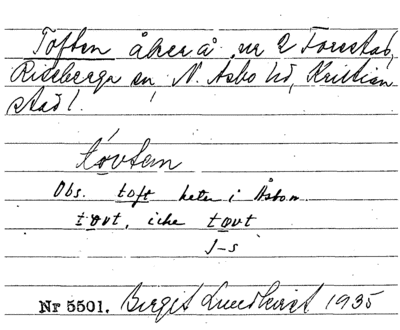 Toften åker å nr 2 Forestad,
Riseberga sn, N. Åsbo hd, Kristian
stad l.
tovten
Obs. toft heter i Åsbon
tovt, icke tovt
J-s
Nr 5501. Birgit Lundkvist 1935